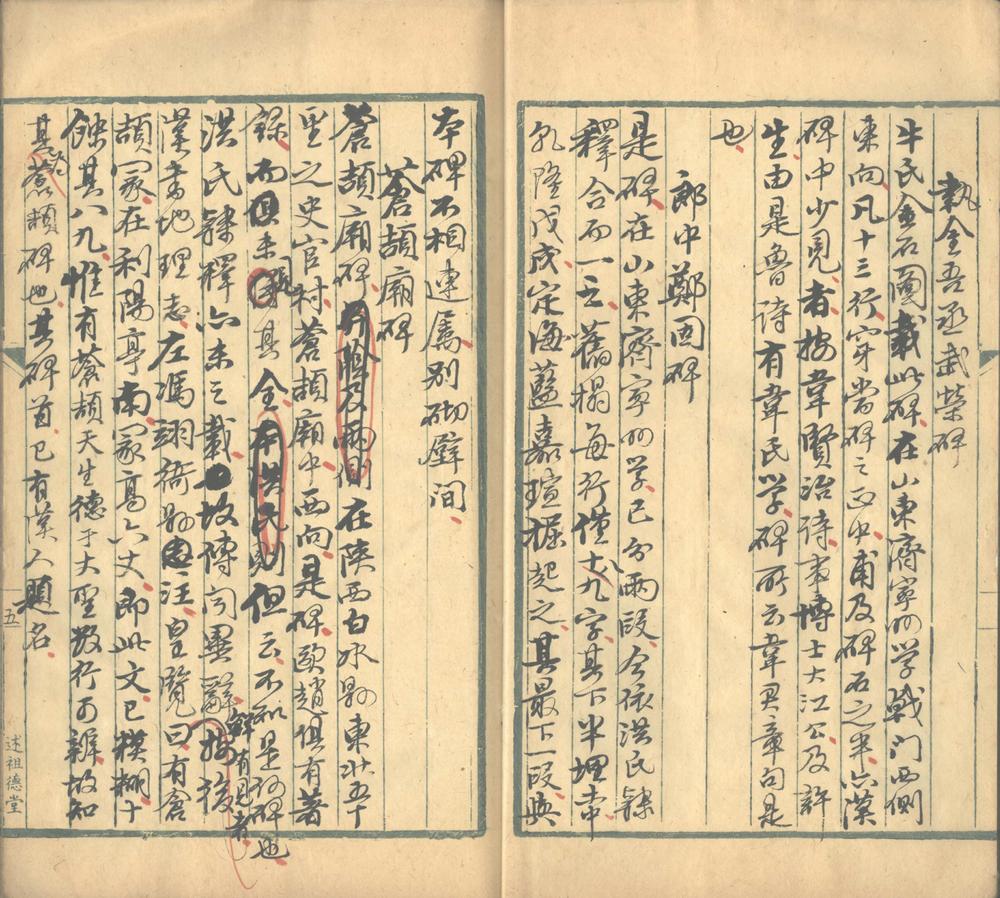 執金吾丞武榮碑
牛氏金石圖載此碑在山東濟寧州學戟門西側
東向凡十三行穿當碑之正中甫及碑石之半六漢
碑中少見者按韋賢治詩事博士大江公及許
生由是魯詩有韋氏學碑所云韋君章句是
也
郎中鄭固碑
是碑在山東濟寧州學已分兩段今依洪氏隸
釋合而一之舊搨每行僅十九字其下半埋土中
乳隆戊戌定海藍嘉瑄掘起之其最下一段與
本碑不相連屬別砌壁間
蒼頡廟碑
蒼頡廟碑并陰及兩側在陝西白水縣東北五十
里之史官村蒼頡廟中西向是碑歐趙俱有著
錄而俱未見其全本洪氏則但云不知是何碑也
洪氏隸釋亦未之載故傳聞異辭鮮有見者按後
漢書地理志左馮翊衙縣注皇覽曰有倉
頡冢在利陽亭南冢高六丈即此文已模糊十
蝕其八九惟有蒼頡天生德于大聖數行可辨故知
其為蒼頡碑也其碑首已有漢人題名
五
述祖德堂